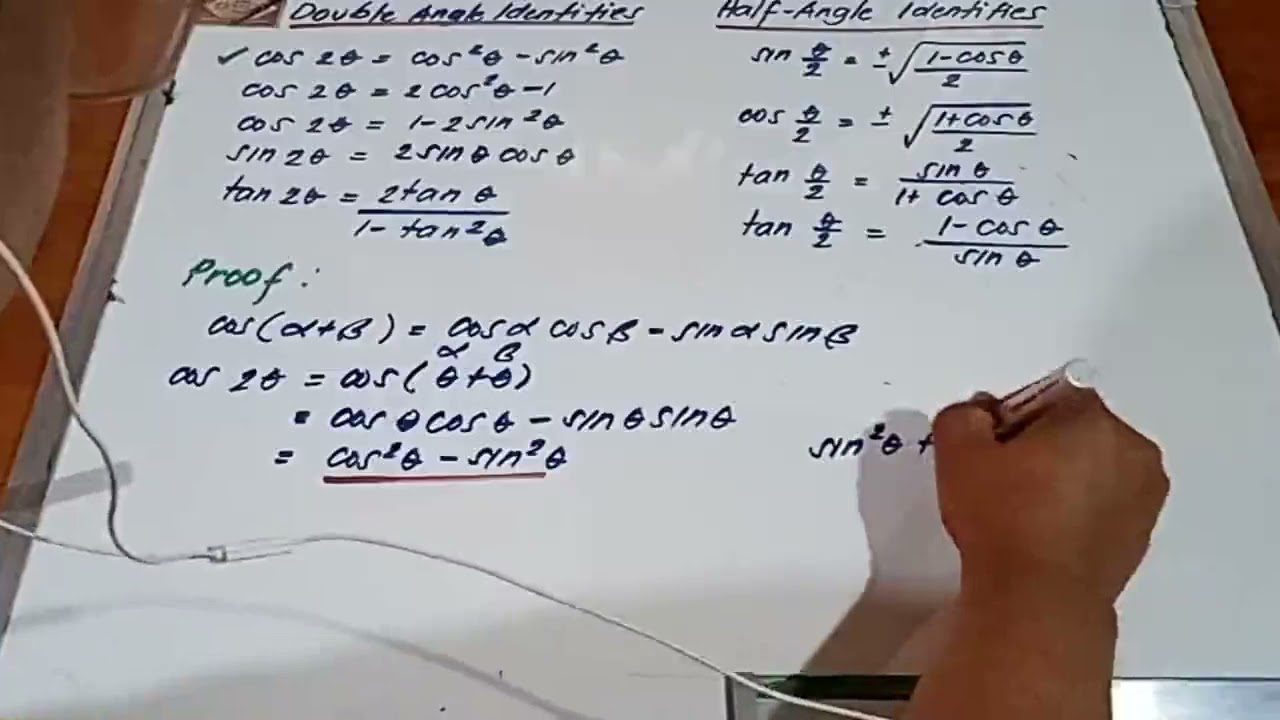 Double Angle Identities
✓ cos 2θ = cos²θ - sin²θ
cos 2θ = 2cos²θ - 1
cos 2θ = 1 - 2sin²θ
sin 2θ = 2sin θ cos θ
tan 2θ = 2tan θ / 1 - tan²θ
Half-Angle Identities
sin θ/2 = ± √(1-cosθ / 2)
cos θ/2 = ± √(1+cosθ / 2)
tan θ/2 = sin θ / 1 + cos θ
tan θ/2 = 1 - cos θ / sin θ
Proof :
cos(α+β) = cosα cosβ - sinα sinβ
α β
cos 2θ = cos(θ+θ)
= cos θ cos θ - sin θ sin θ
= cos²θ - sin²θ
sin²θ +